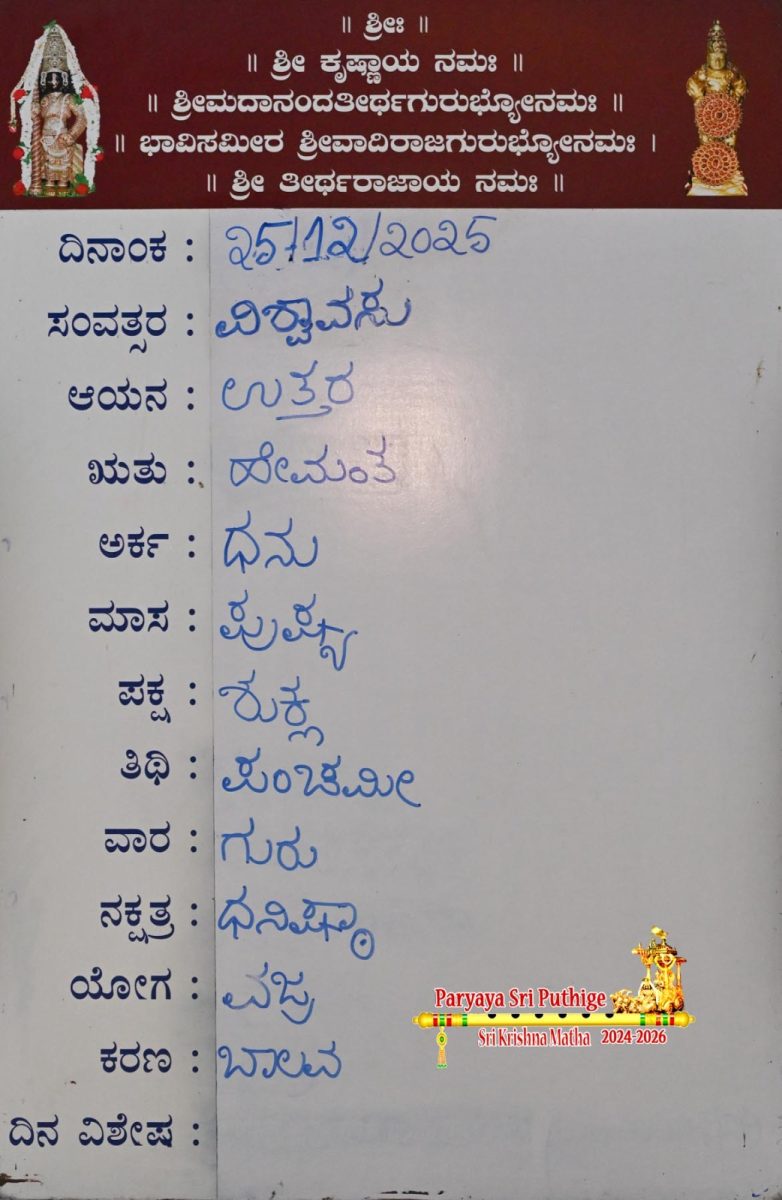 ॥ ಶ್ರೀಃ ॥
॥ ಶ್ರೀ ಕೃಷ್ಣಾಯ ನಮಃ ॥
॥ ಶ್ರೀಮದಾನಂದತೀರ್ಥಗುರುಭ್ಯೋನಮಃ ॥
॥ ಭಾವಿಸಮೀರ ಶ್ರೀವಾದಿರಾಜಗುರುಭ್ಯೋನಮಃ ।
॥ ಶ್ರೀ ತೀರ್ಥರಾಜಾಯ ನಮಃ ॥
ದಿನಾಂಕ : 25/12/2025
ಸಂವತ್ಸರ : ವಿಶ್ವಾವಸು
ಆಯನ : ಉತ್ತರ
ಋತು : ಹೇಮಂತ
ಅರ್ಕ : ಧನು
ಮಾಸ : ಪುಷ್ಯ
ಪಕ್ಷ : ಶುಕ್ಲ
ತಿಥಿ : ಪಂಚಮೀ
ವಾರ : ಗುರು
ನಕ್ಷತ್ರ : ಧನಿಷ್ಠಾ
ಯೋಗ : ವಜ್ರ
ಕರಣ : ಬಾಲವ
ದಿನ ವಿಶೇಷ :
Paryaya Sri Puthige
Sri Krishna Matha 2024-2026